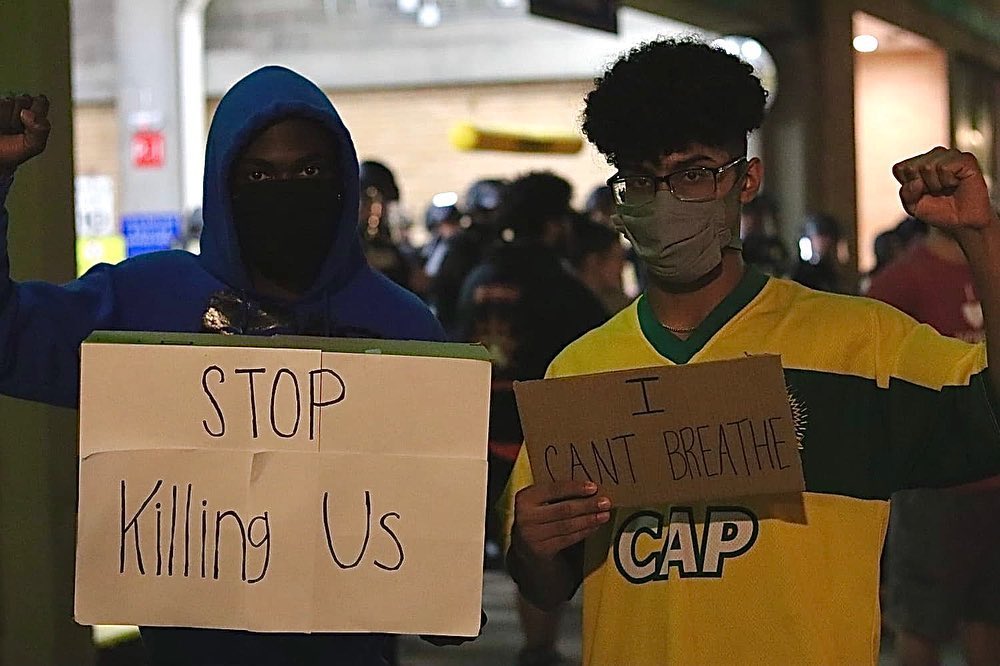 STOP
Killing Us
I
CANT BREATHE
CAP